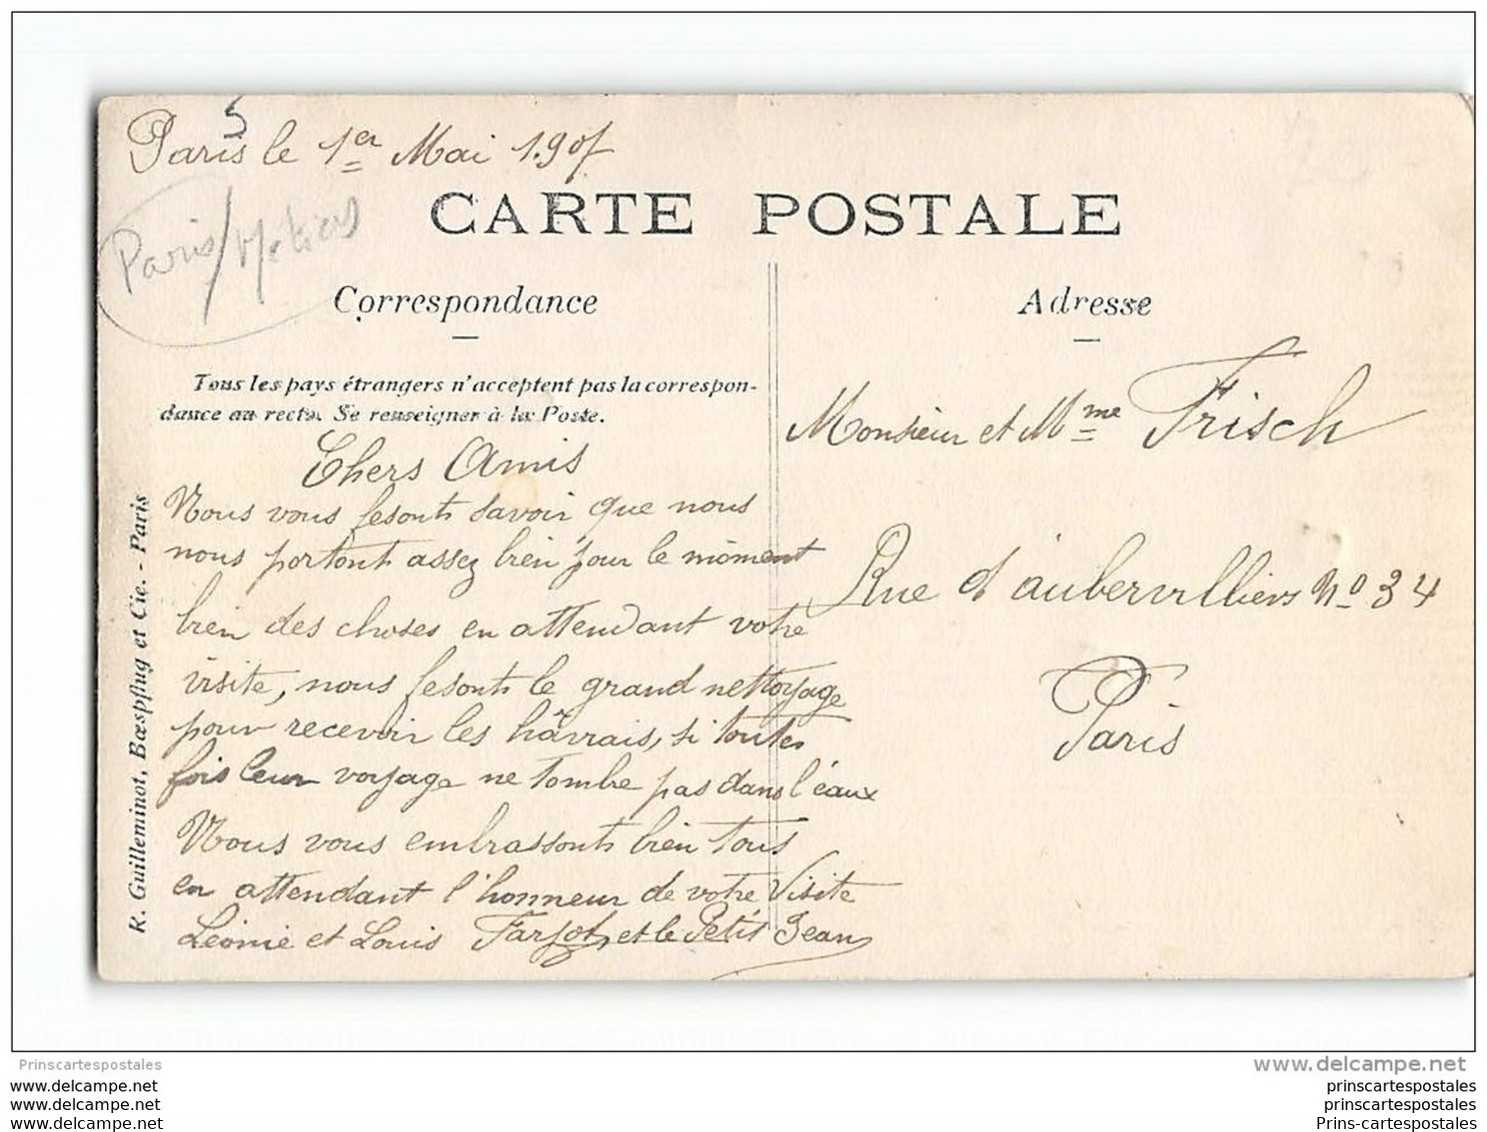 5
Paris le 1er Mai 1907
Paris/Métiers
CARTE POSTALE
Correspondance
Adresse
Tous les pays étrangers n'acceptent pas la correspon-
dance au recto. Se renseigner à la Poste.
Chers Amis
Nous vous fesonts savoir que nous
nous portont assez bien pour le moment
bien des choses en attendant votre
visite, nous fesonts le grand nettoyage
pour recevoir les hâvrais, si toutes
fois leur voyage ne tombe pas dans l'éaux
Nous vous embrassonts bien tous
en attendant l'honneur de votre Visite
Léonie et Louis Farjot, et le Petit Jean
Monsieur et Mme Frisch
Rue d'aubervilliers No 34
Paris
R. Guilleminot, Bœspflug et Cie. - Paris
Prinscartespostales
www.delcampe.net
www.delcampe.net
www.delcampe.net
www.delcampe.net
prinscartespostales
prinscartespostales
Prins-cartespostales